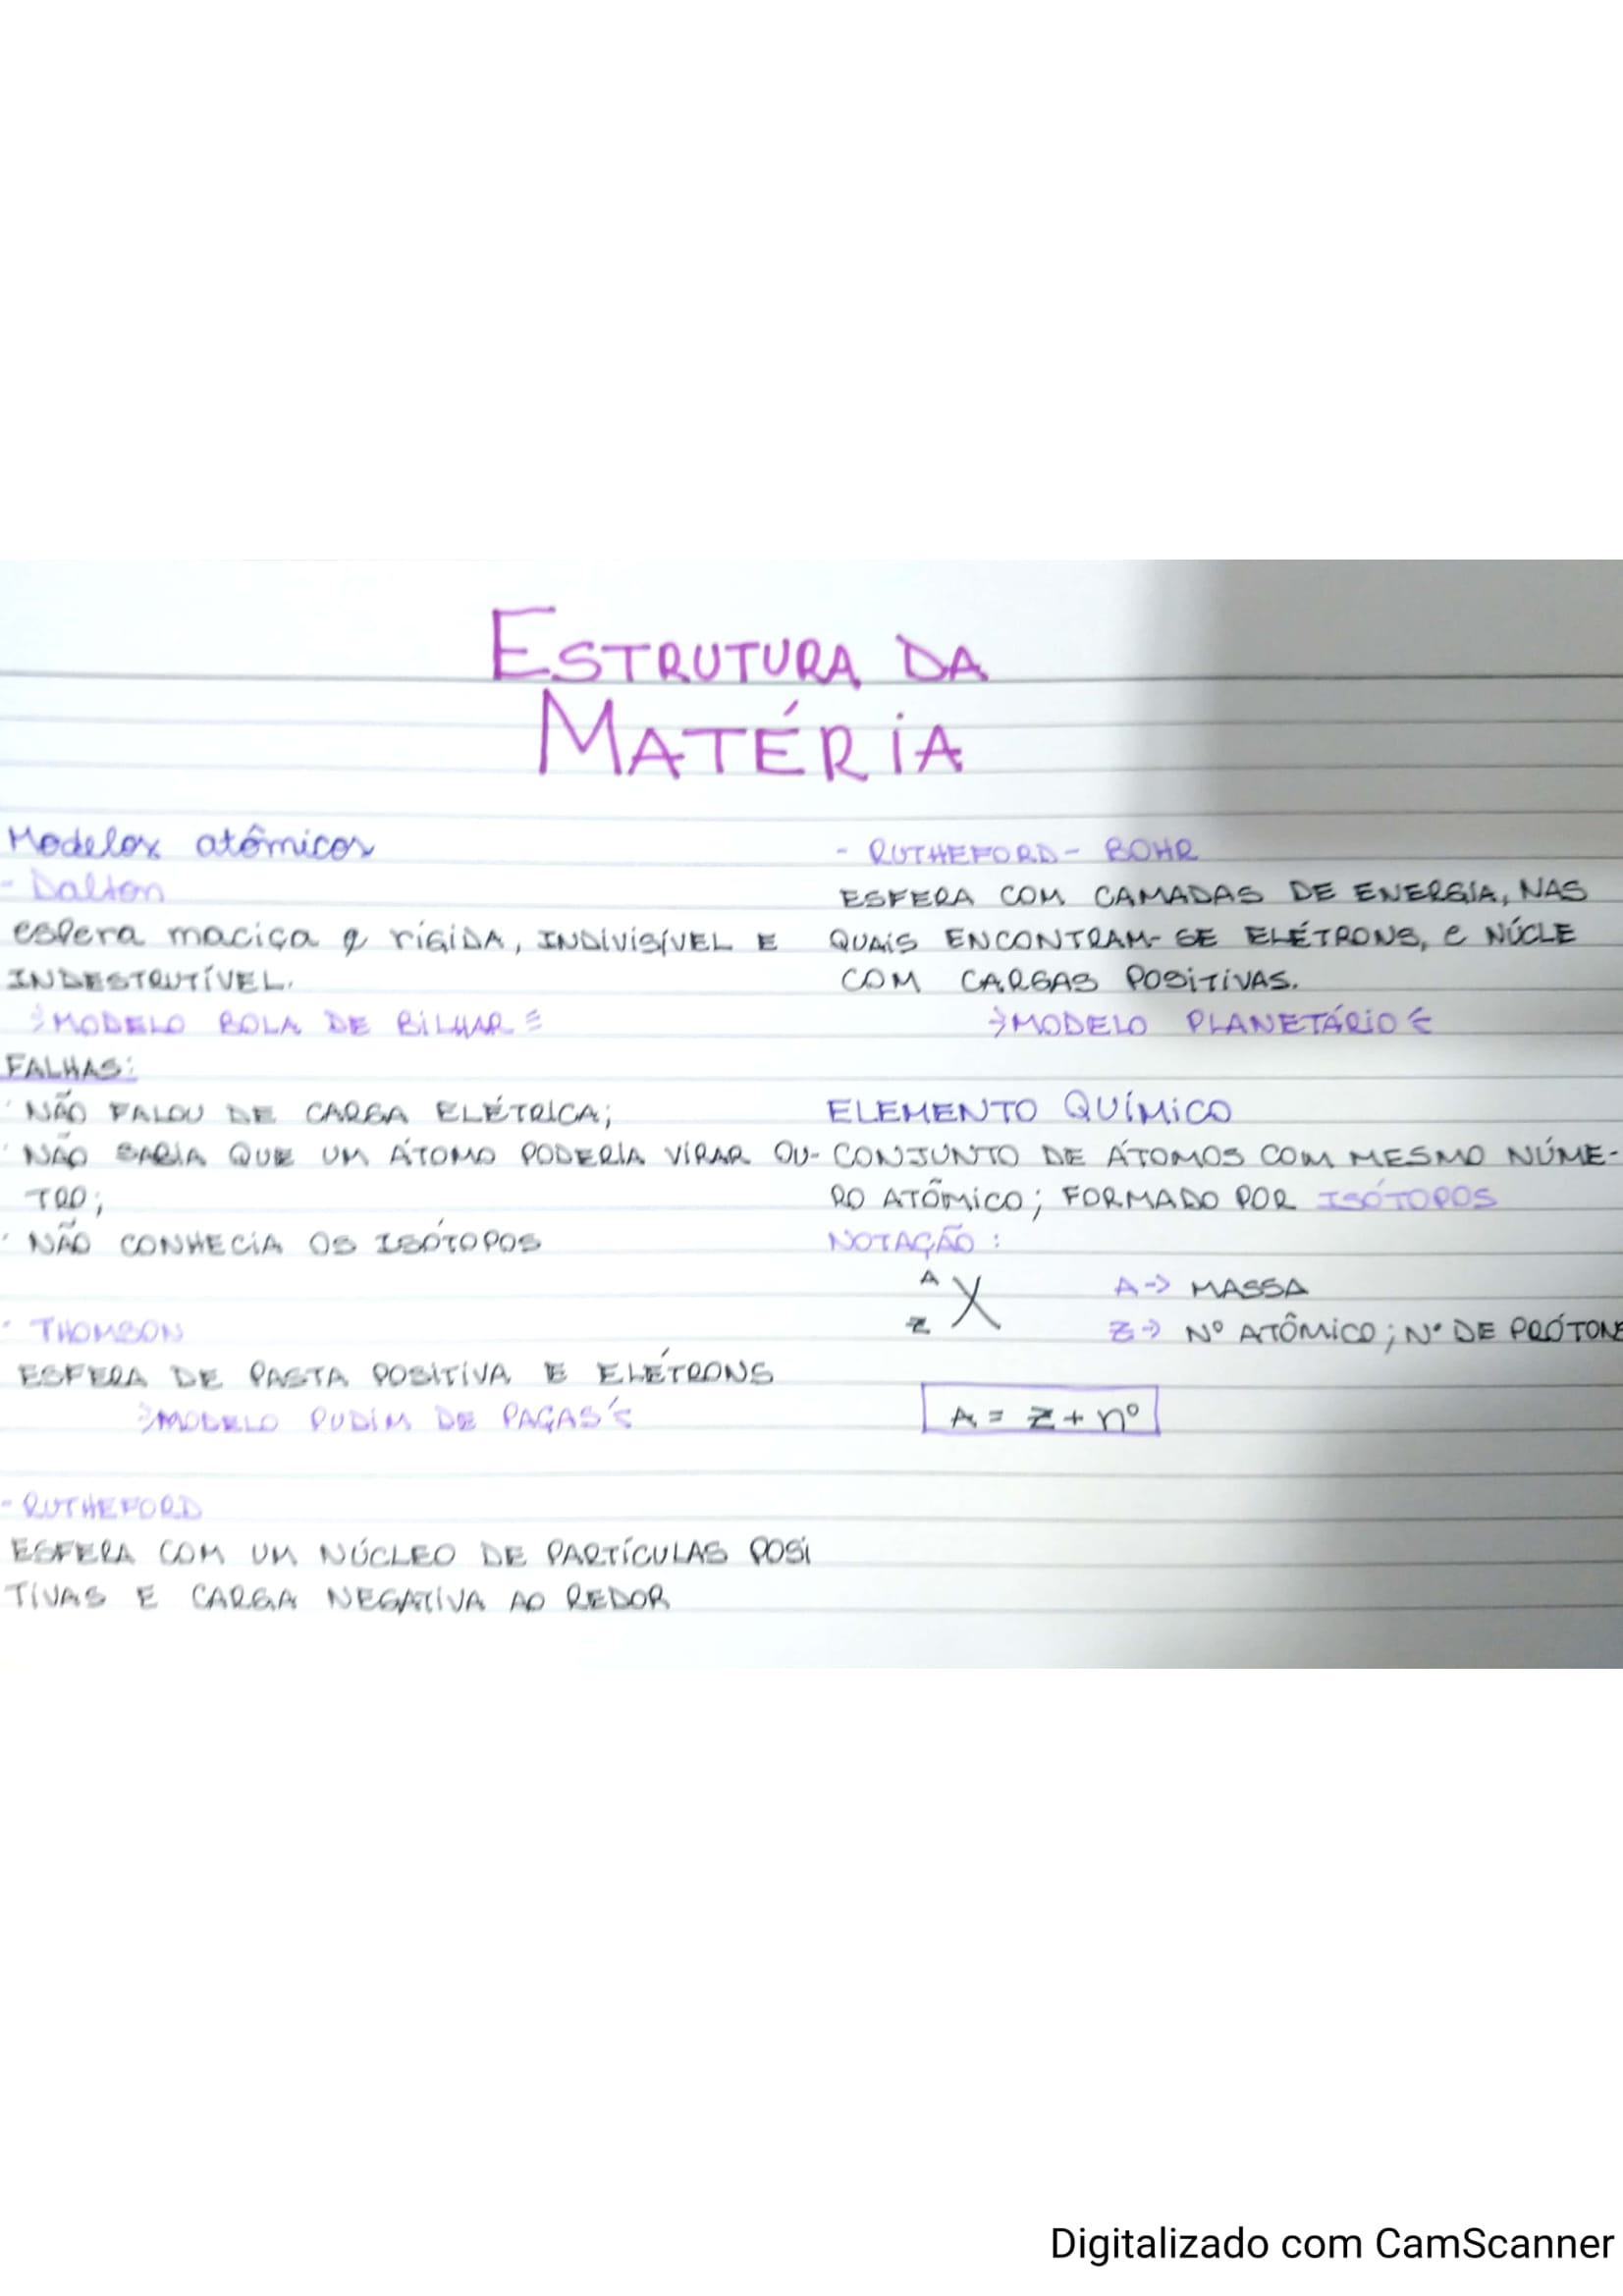 ESTRUTURA DA
MATÉRIA
Modelos atômicos
- Dalton
esfera maciça e rígida, INDIVISÍVEL E
INDESTRUTÍVEL.
MODELO BOLA DE BILHAR
FALHAS:
· NÃO FALOU DE CARGA ELÉTRICA;
· NÃO SABIA QUE UM ÁTOMO PODERIA VIRAR OU-
TRO;
· NÃO CONHECIA OS ISÓTOPOS
· THOMSON
ESFERA DE PASTA POSITIVA E ELÉTRONS
MODELO PUDIM DE PAÇAS
- RUTHEFORD
ESFERA COM UM NÚCLEO DE PARTÍCULAS POSI
TIVAS E CARGA NEGATIVA AO REDOR
- RUTHEFORD - BOHR
ESFERA COM CAMADAS DE ENERGIA, NAS
QUAIS ENCONTRAM-SE ELÉTRONS, e NÚCLE
COM CARGAS POSITIVAS.
MODELO PLANETÁRIO
ELEMENTO QUÍMICO
CONJUNTO DE ÁTOMOS COM MESMO NÚME-
RO ATÔMICO; FORMADO POR ISÓTOPOS
NOTAÇÃO:
A X A -> MASSA
Z Z -> Nº ATÔMICO; Nº DE PRÓTONS
A = Z + nº
Digitalizado com CamScanner